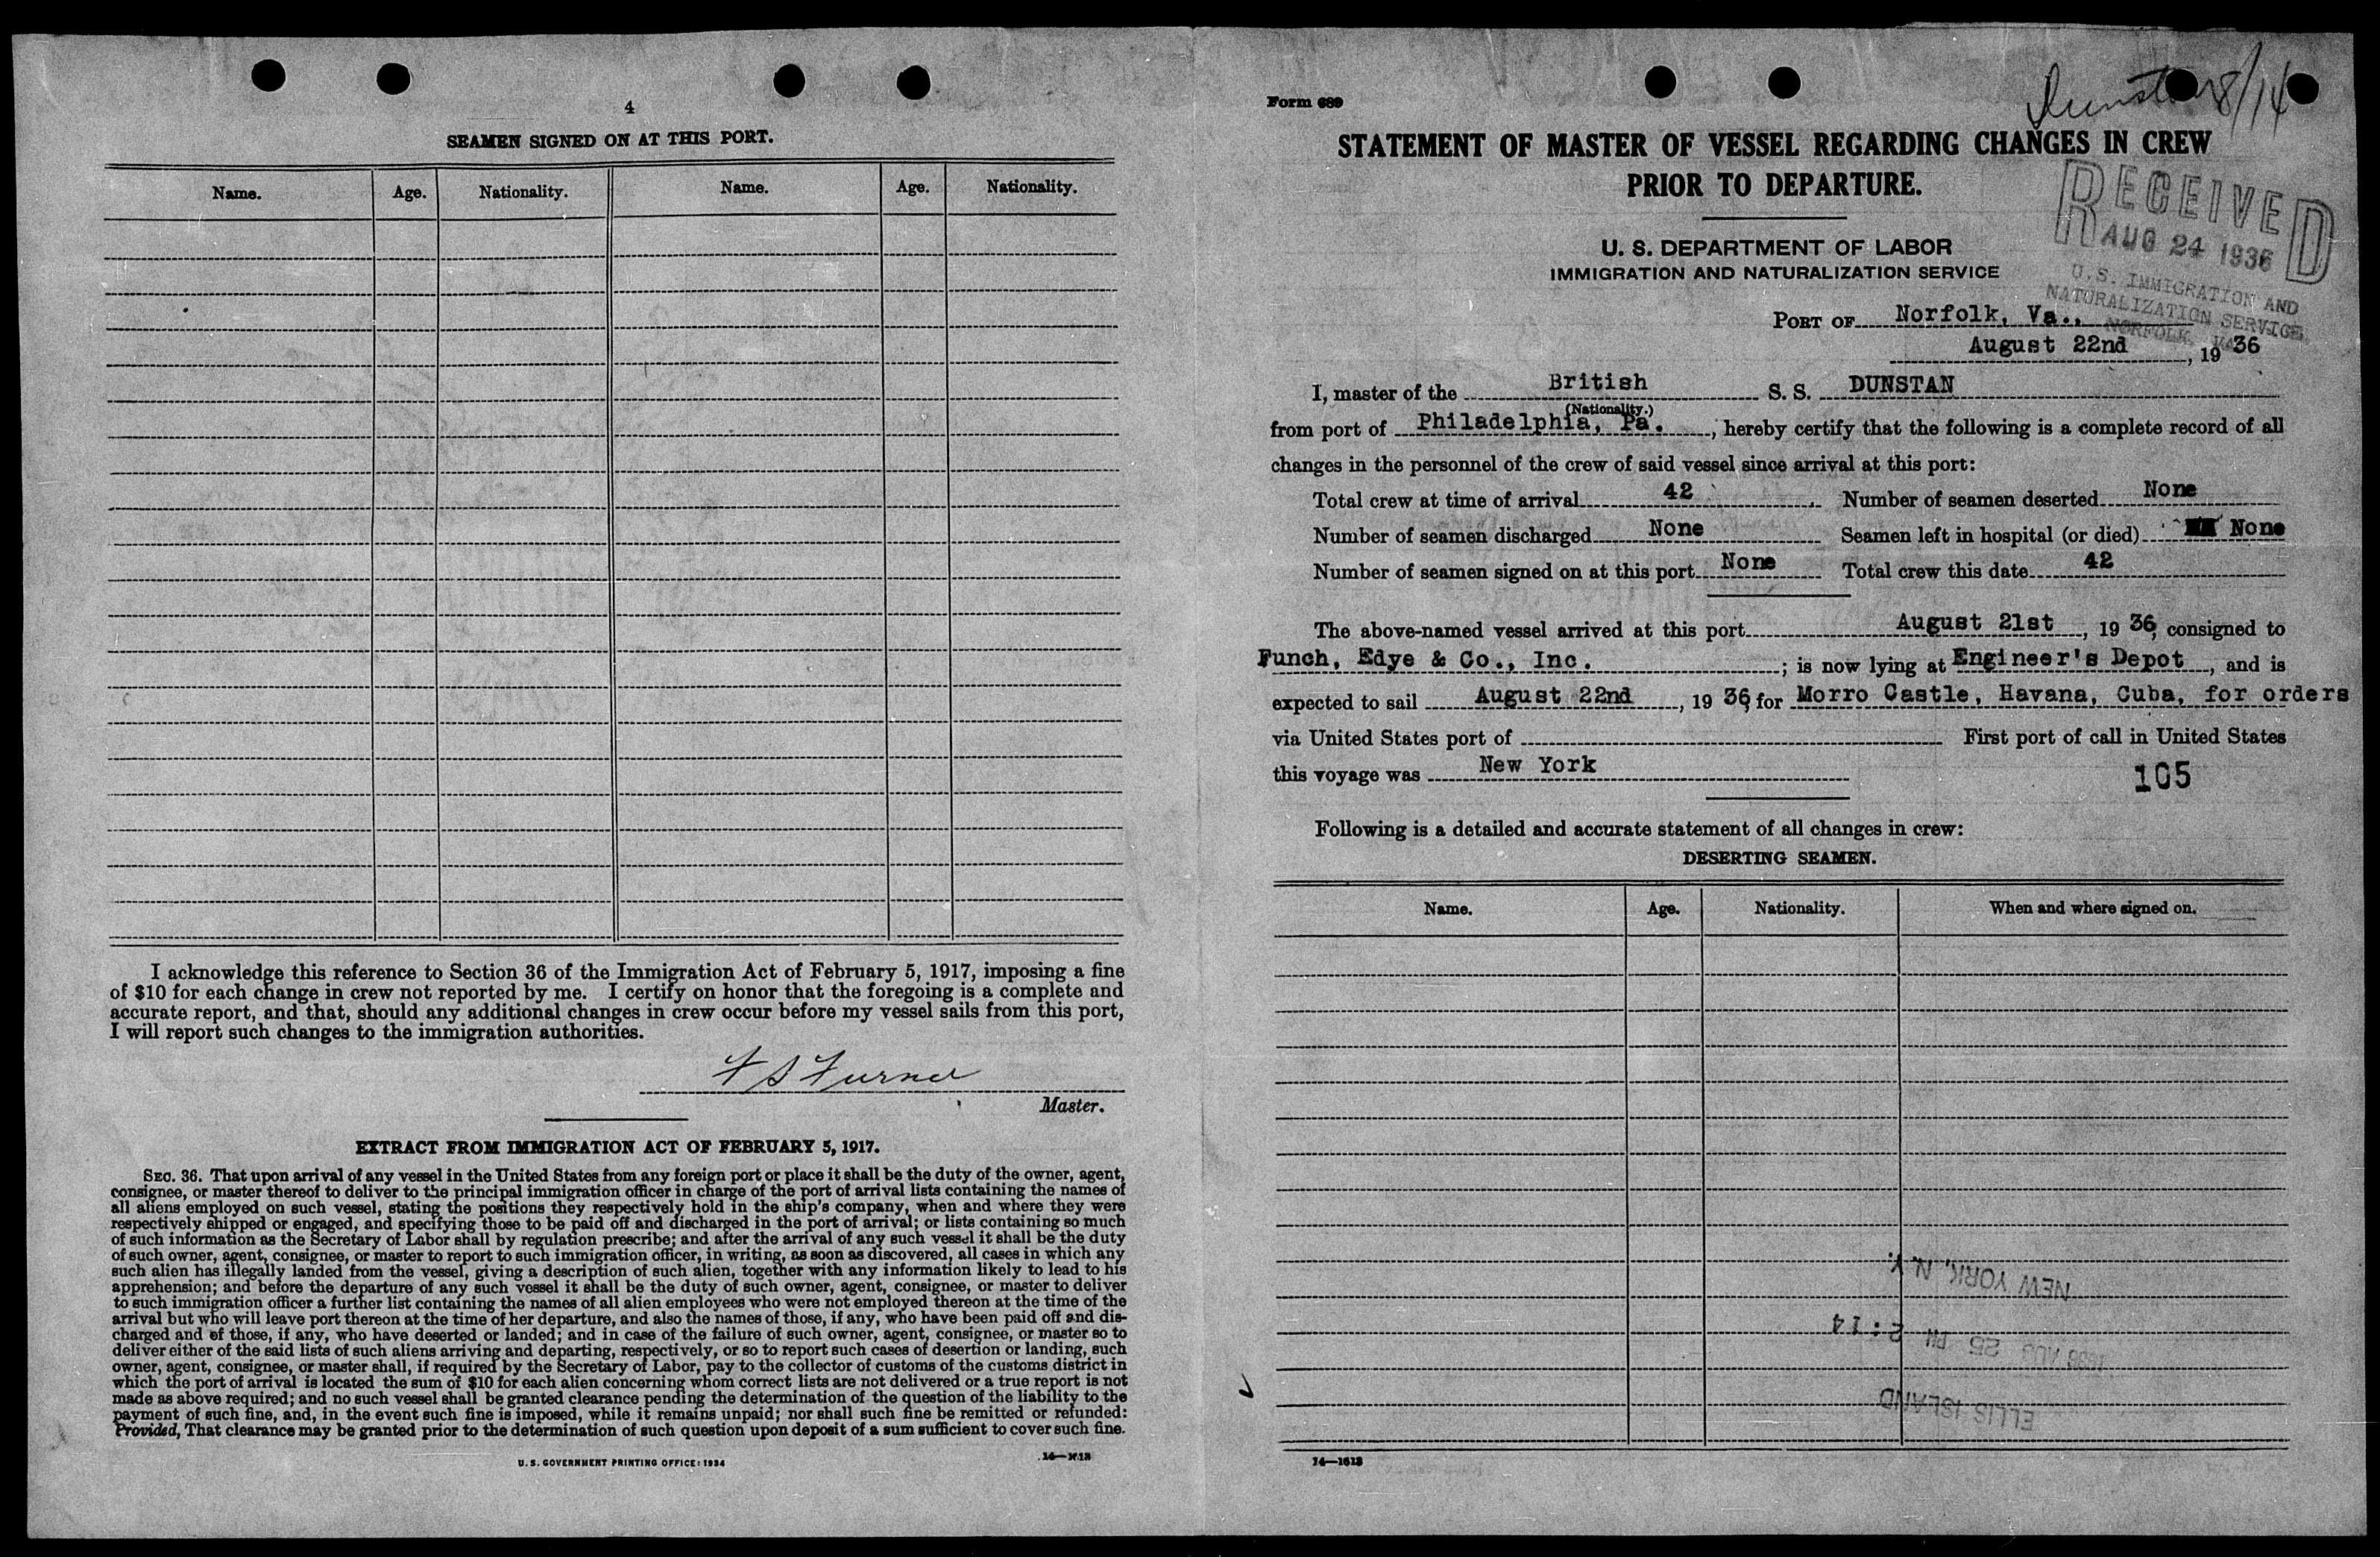 4
SEAMEN SIGNED ON AT THIS PORT.
Name. Age. Nationality. Name. Age. Nationality.
I acknowledge this reference to Section 36 of the Immigration Act of February 5, 1917, imposing a fine
of $10 for each change in crew not reported by me. I certify on honor that the foregoing is a complete and
accurate report, and that, should any additional changes in crew occur before my vessel sails from this port,
I will report such changes to the immigration authorities.
Master.
EXTRACT FROM IMMIGRATION ACT OF FEBRUARY 5, 1917.
SEC. 36. That upon arrival of any vessel in the United States from any foreign port or place it shall be the duty of the owner, agent,
consignee, or master thereof to deliver to the principal immigration officer in charge of the port of arrival lists containing the names of
all aliens employed on such vessel, stating the positions they respectively hold in the ship's company, when and where they were
respectively shipped or engaged, and specifying those to be paid off and discharged in the port of arrival; or lists containing so much
of such information as the Secretary of Labor shall by regulation prescribe; and after the arrival of any such vessel it shall be the duty
of such owner, agent, consignee, or master to report to such immigration officer, in writing, as soon as discovered, all cases in which any
such alien has illegally landed from the vessel, giving a description of such alien, together with any information likely to lead to his
apprehension; and before the departure of any such vessel it shall be the duty of such owner, agent, consignee, or master to deliver
to such immigration officer a further list containing the names of all alien employees who were not employed thereon at the time of the
arrival but who will leave port thereon at the time of her departure, and also the names of those, if any, who have been paid off and dis-
charged and of those, if any, who have deserted or landed; and in case of the failure of such owner, agent, consignee, or master so to
deliver either of the said lists of such aliens arriving and departing, respectively, or so to report such cases of desertion or landing, such
owner, agent, consignee, or master shall, if required by the Secretary of Labor, pay to the collector of customs of the customs district in
which the port of arrival is located the sum of $10 for each alien concerning whom correct lists are not delivered or a true report is not
made as above required; and no such vessel shall be granted clearance pending the determination of the question of the liability to the
payment of such fine, and, in the event such fine is imposed, while it remains unpaid; nor shall such fine be remitted or refunded:
Provided, That clearance may be granted prior to the determination of such question upon deposit of a sum sufficient to cover such fine.
U. S. GOVERNMENT PRINTING OFFICE: 1934
Form 689
8/14
STATEMENT OF MASTER OF VESSEL REGARDING CHANGES IN CREW
PRIOR TO DEPARTURE.
RECEIVED
AUG 24 1936
U.S. IMMIGRATION AND
NATURALIZATION SERVICE
NORFOLK, VA.
U. S. DEPARTMENT OF LABOR
IMMIGRATION AND NATURALIZATION SERVICE
PORT OF Norfolk, Va.,
August 22nd, 19 36
I, master of the British S. S. DUNSTAN
(Nationality.)
from port of Philadelphia, Pa., hereby certify that the following is a complete record of all
changes in the personnel of the crew of said vessel since arrival at this port:
Total crew at time of arrival 42. Number of seamen deserted None
Number of seamen discharged None Seamen left in hospital (or died) None
Number of seamen signed on at this port None Total crew this date 42
The above-named vessel arrived at this port August 21st, 19 36, consigned to
Funch, Edye & Co., Inc.; is now lying at Engineer's Depot, and is
expected to sail August 22nd, 19 36, for Morro Castle, Havana, Cuba, for orders
via United States port of First port of call in United States
this voyage was New York
105
Following is a detailed and accurate statement of all changes in crew:
DESERTING SEAMEN.
Name. Age. Nationality. When and where signed on.
NEW YORK, N. Y.
1936 AUG 25 PM 2:14
ELLIS ISLAND
14—1613